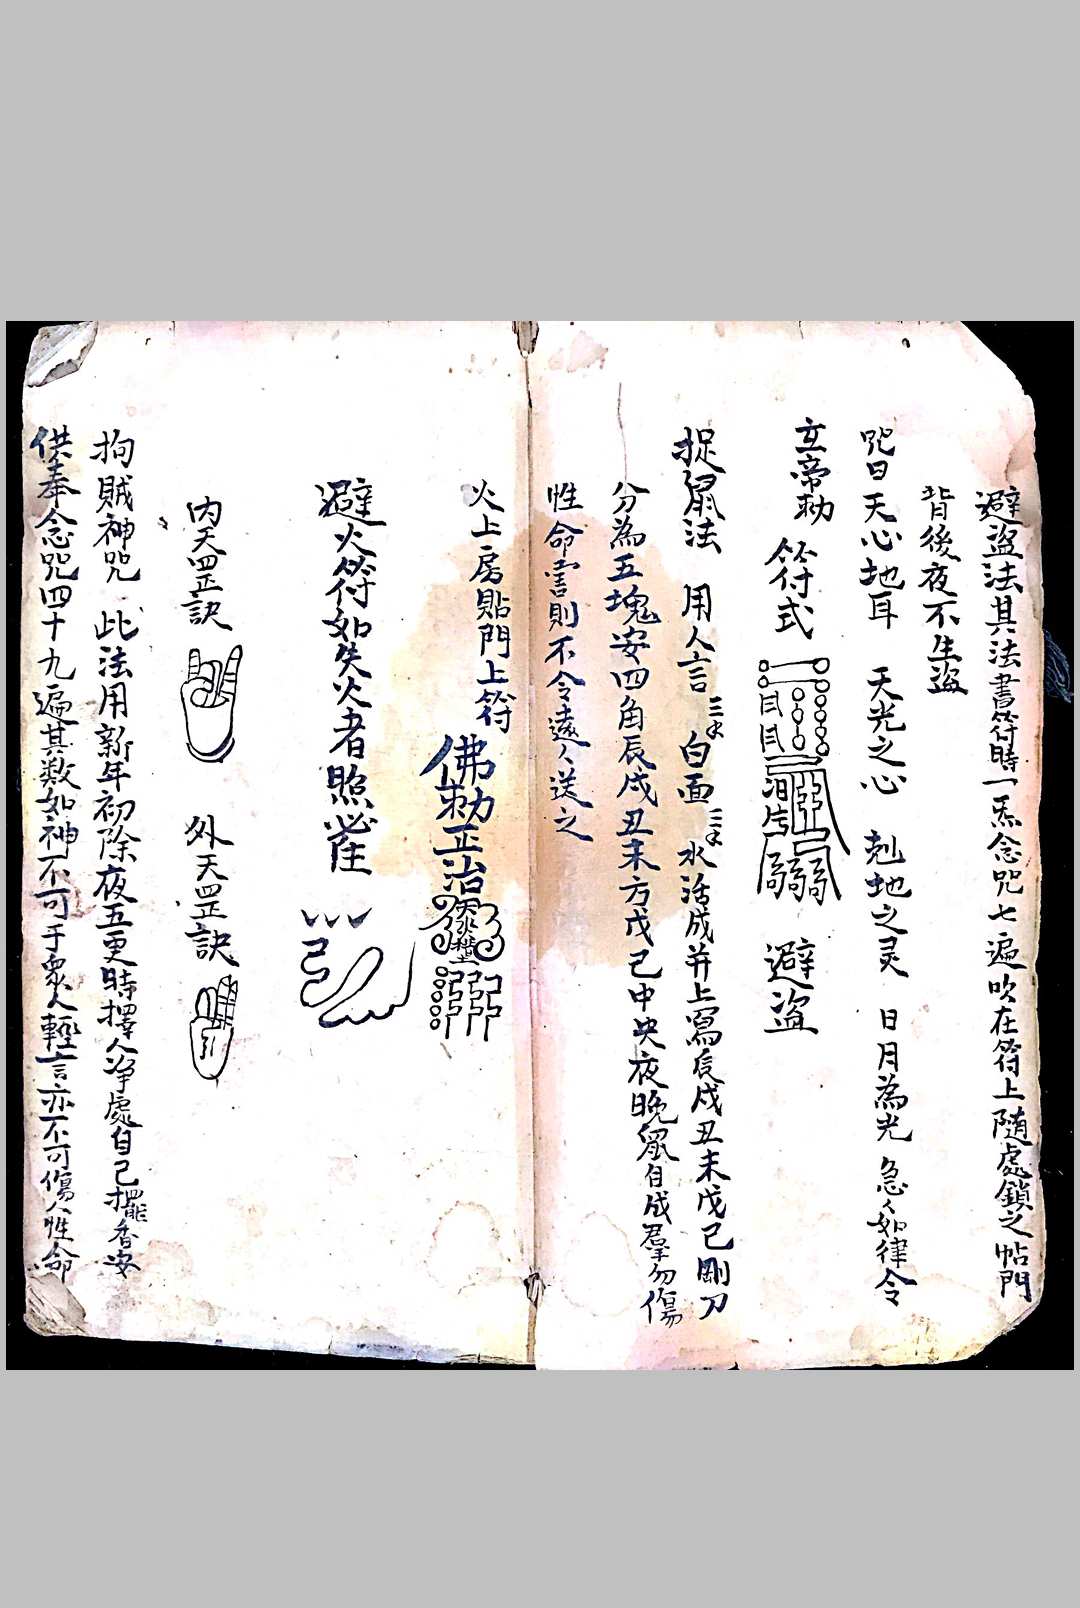 避盜法其法書符時一炁念咒七遍吹在符上隨處鎖之帖門
背後夜不生盜
咒曰天心地耳 天光之心 尅地之灵 日月為光 急々如律令
玄帝勅 符式 避盜
捉鼠法 用人言三錢白面二錢水活成并上寫辰戌丑未戊己剛刀
分為五塊安四角辰戌丑未方戊己中央夜晚鼠自成羣勿傷
性命害則不令遠人送之
火上房貼門上符 佛勅正治
避火符如失火者照
內天罡訣 外天罡訣
拘賊神咒 此法用新年初除夜五更時擇人净處自己擺香安
供奉念咒四十九遍其数如神不可于衆人輕言亦不可傷人性命